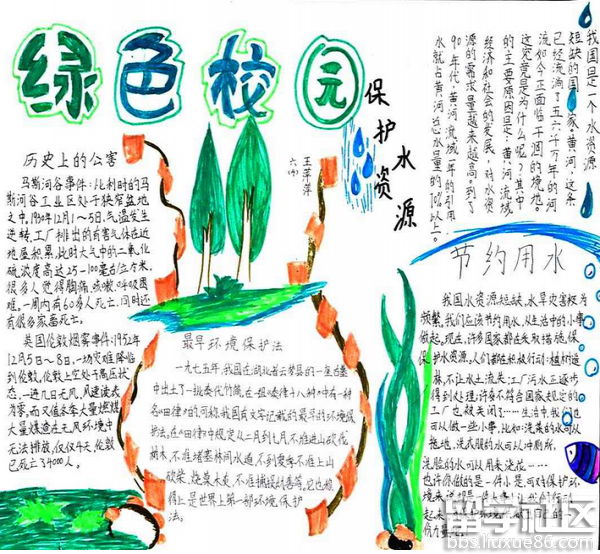 绿色校园
保护水资源
六(4)
王萍萍
我国是一个水资源
短缺的国家。黄河,这条
已经流淌了五六千万年的河
流如今正面临干涸的境地。
这究竟是为什么呢?其中
的主要原因是:黄河流域
经济和社会的发展,对水资
源的需求量越来越高。到了
90年代,黄河流域一年的引用
水就占黄河总水量的10%以上。
历史上的公害
马斯河谷事件:比利时的马
斯河谷工业区处于狭窄盆地
之中,1930年12月1~5日,气温发生
逆转,工厂排出的有害气体在近
地层积累,此时大气中的二氧化
硫浓度高达25-100毫克/立方米。
很多人觉得胸痛、咳嗽、呼吸困
难。一周内有60多人死亡,同时还
有很多家畜死亡。
英国伦敦烟雾事件:1952年
12月5日~8日,一场灾难降临
到伦敦,伦敦上空处于高压状
态,一连几日无风,风速读表
为零,而又值冬季大量燃煤
大量煤烟在无风环境中
无法排放,仅仅4天,伦敦
已死亡了4000人。
最早环境保护法
一九七五年,我国在湖北省云梦县的一座古墓
中出土了一批秦代竹简,在一组《秦律十八种》中有一种
名《田律》的,可称我国有文字记载的最早的环境保
护法,在《田律》中规定从二月到七月,不准进山砍伐
树木,不准堵塞林间水道,不到夏季不准上山
砍柴、烧草木灰,不准捕捉幼兽等,它也被
得上是世界上第一部环境保护
法。
节约用水
我国水资源短缺,水旱灾害极为
频繁,我们应该节约用水,从生活中的小事
做起。现在,许多国家都在采取措施,保
保护水资源。人们都在积极行动:植树造
林,不让水土流失;工厂污水正逐步
得到处理;许多不符合国家规定的
工厂也被关闭了……生活中,我们也
可以做一些小事,比如:洗菜的水可以
拖地,洗衣服的水可以冲厕所,
洗脸的水可以用来浇花……
也许你做的是一件小
起来
份力量
留学社区
bbs.liuxue86.com